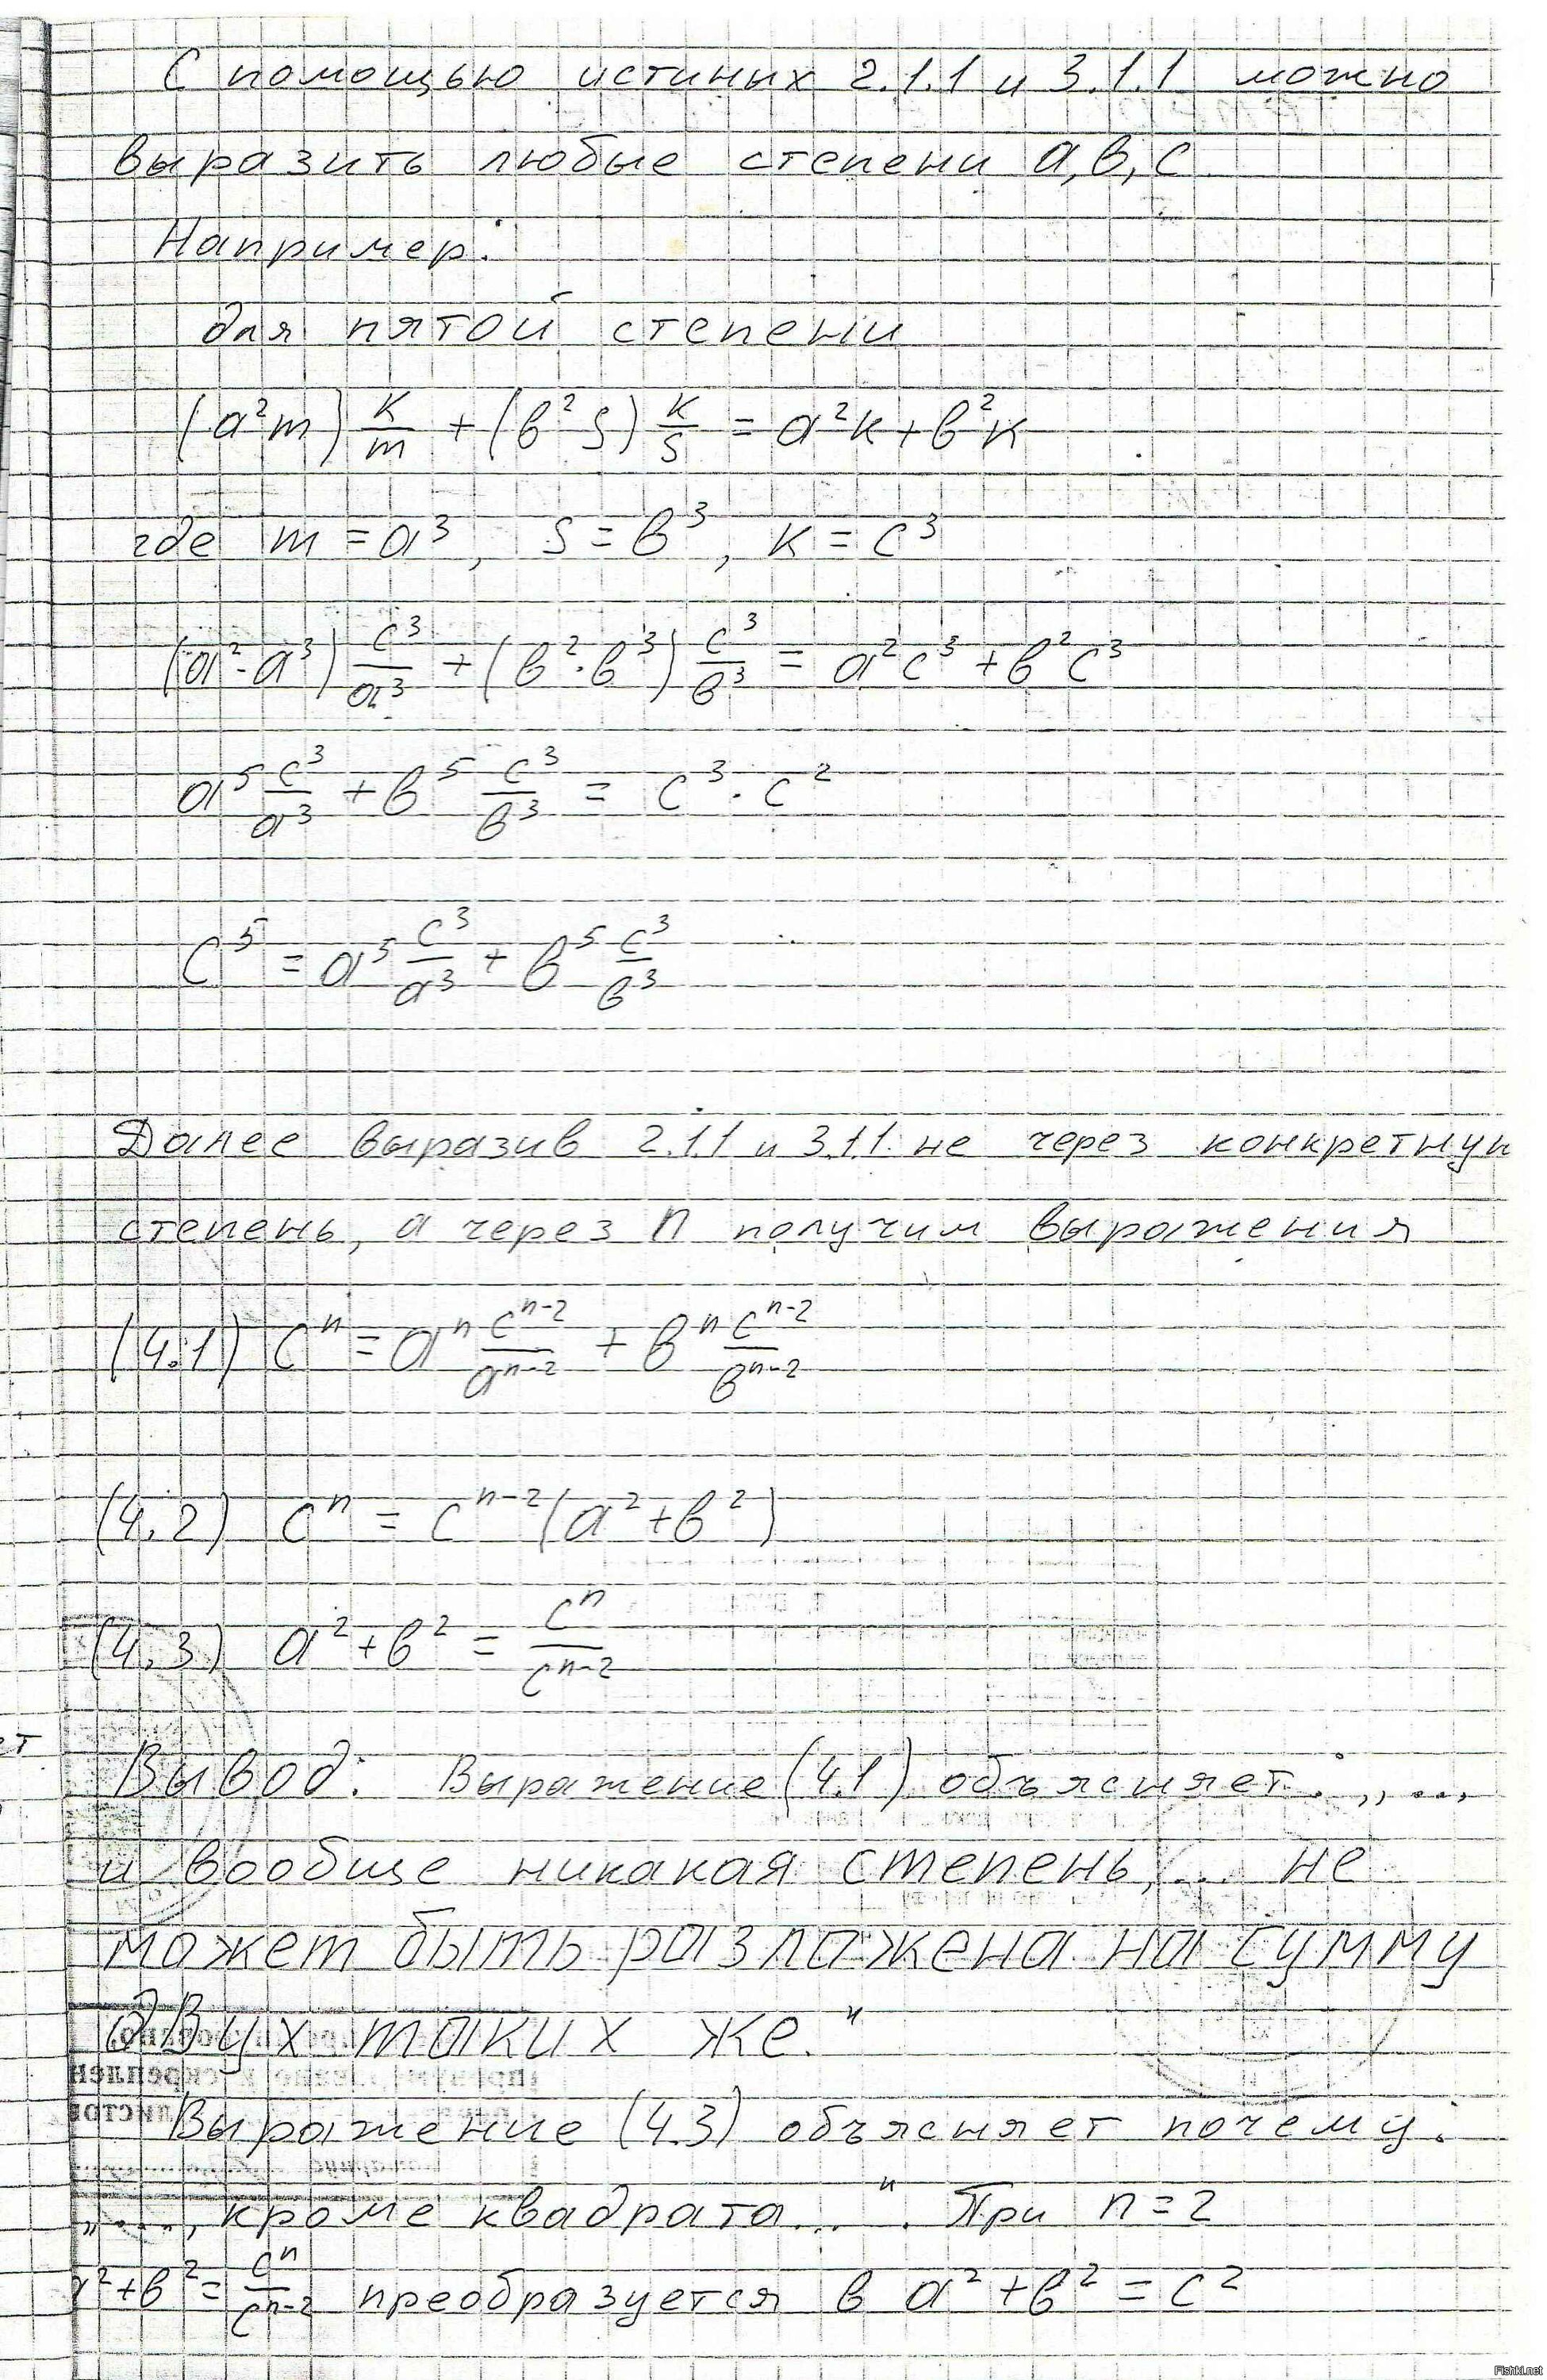 С помощью истиных 2.1.1 и 3.1.1 можно
выразить любые степени а, в, с
Например:
для пятой степени
(a²m) k/m + (в²s) k/s = a²k + в²k
где m = a³, s = в³, k = c³
(a²·a³) c³/a³ + (в²·в³) c³/в³ = a²c³ + в²c³
a⁵ c³/a³ + в⁵ c³/в³ = c³·c²
c⁵ = a⁵ c³/a³ + в⁵ c³/в³
Далее выразив 2.1.1 и 3.1.1. не через конкретную
степень, а через n получим выражения
(4.1) cⁿ = aⁿ cⁿ⁻²/aⁿ⁻² + вⁿ cⁿ⁻²/вⁿ⁻²
(4.2) cⁿ = cⁿ⁻²(a² + в²)
(4.3) a² + в² = cⁿ/cⁿ⁻²
Вывод: Выражение (4.1) объясняет: „ ...,
и вообще никакая степень, ... не
может быть разложена на сумму
двух таких же."
Выражение (4.3) объясняет почему:
„ ...., кроме квадрата...". При n = 2
a² + в² = cⁿ/cⁿ⁻² преобразуется в a² + в² = c²
Fishki.net